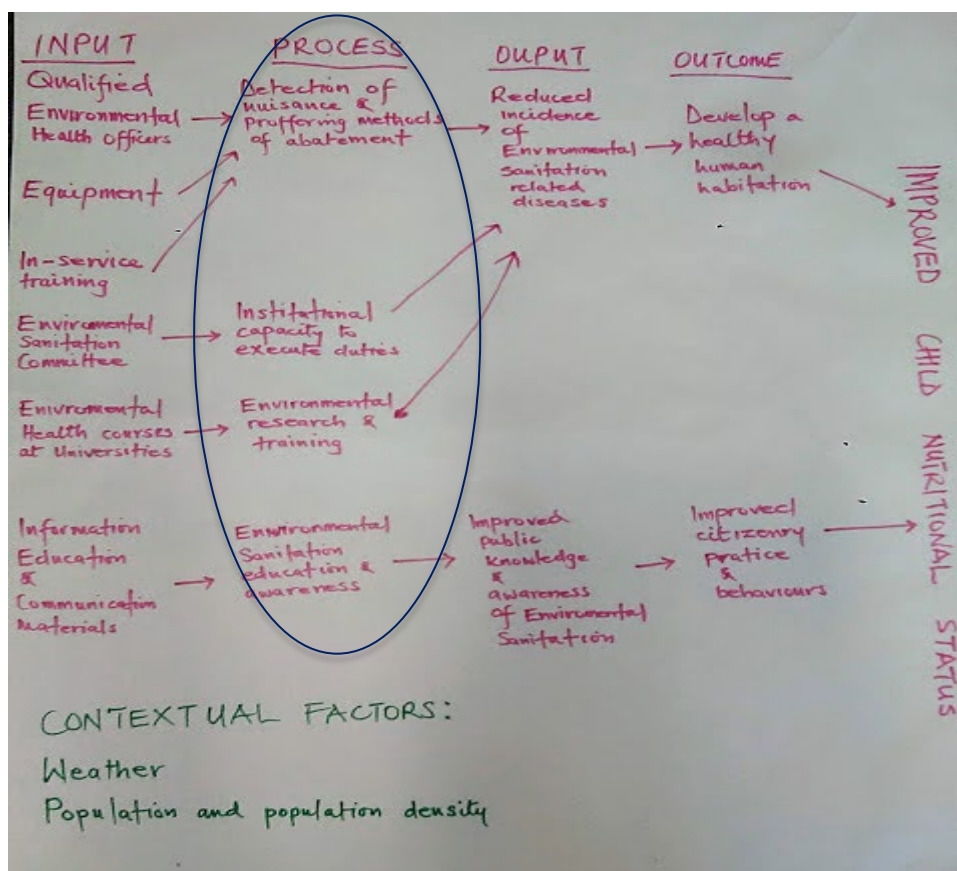 INPUT
Qualified
Environmental
Health officers
Equipment
In-service
training
Enviromental
Sanitation
Committee
Enivromental
Health courses
at Universities
Information
Education
&
Communication
Materials
PROCESS
Detection of
nuisance &
proffering methods
of abatement
Institutional
capacity to
execute duties
Environmental
research &
training
Environmental
Sanitation
education &
awareness
OUPUT
Reduced
incidence
of
Environmental
sanitation
related
diseases
Improved
public
knowledge
&
awareness
of Enviromental
Sanitation
OUTCOME
Develop a
healthy
human
habitation
Improved
citizenry
pratice
&
behaviours
IMPROVED CHILD NUTRITIONAL STATUS
CONTEXTUAL FACTORS:
Weather
Population and population density